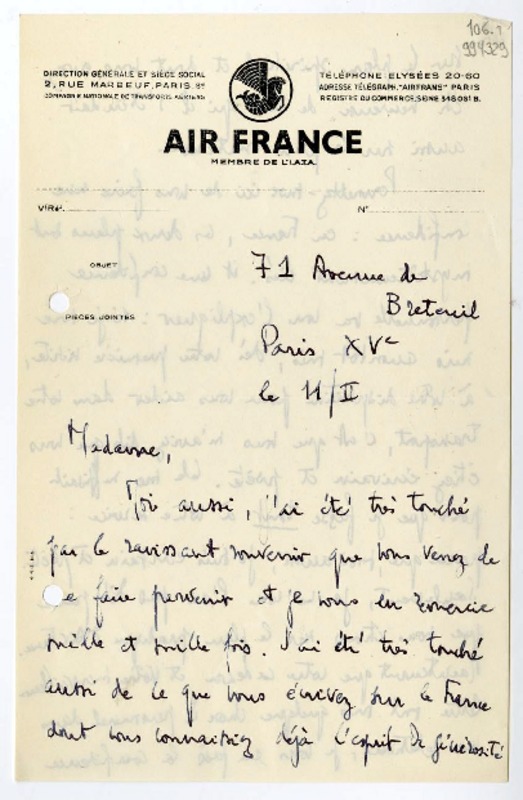 106.1
994329
DIRECTION GÉNÉRALE ET SIÈGE SOCIAL
2, RUE MARBEUF, PARIS. 8e
COMPAGNIE NATIONALE DE TRANSPORTS AÉRIENS
TÉLÉPHONE: ELYSÉES 20-60
ADRESSE TÉLÉGRAPH. "AIRFRANS" PARIS
REGISTRE DU COMMERCE, SEINE 348081 B.
AIR FRANCE
MEMBRE DE L'I.A.T.A.
V/RÉF.
N°
OBJET
PIÈCES JOINTES
71 Avenue de
Breteuil
Paris XVe
le 11/II
Madame,
Moi aussi, j'ai été très touché
par le ravissant souvenir que vous venez de
e faire parvenir et je vous en remercie
mille et mille fois. J'ai été très touché
aussi de ce que vous écrivez sur la France
dont vous connaissiez déjà l'esprit de générosité